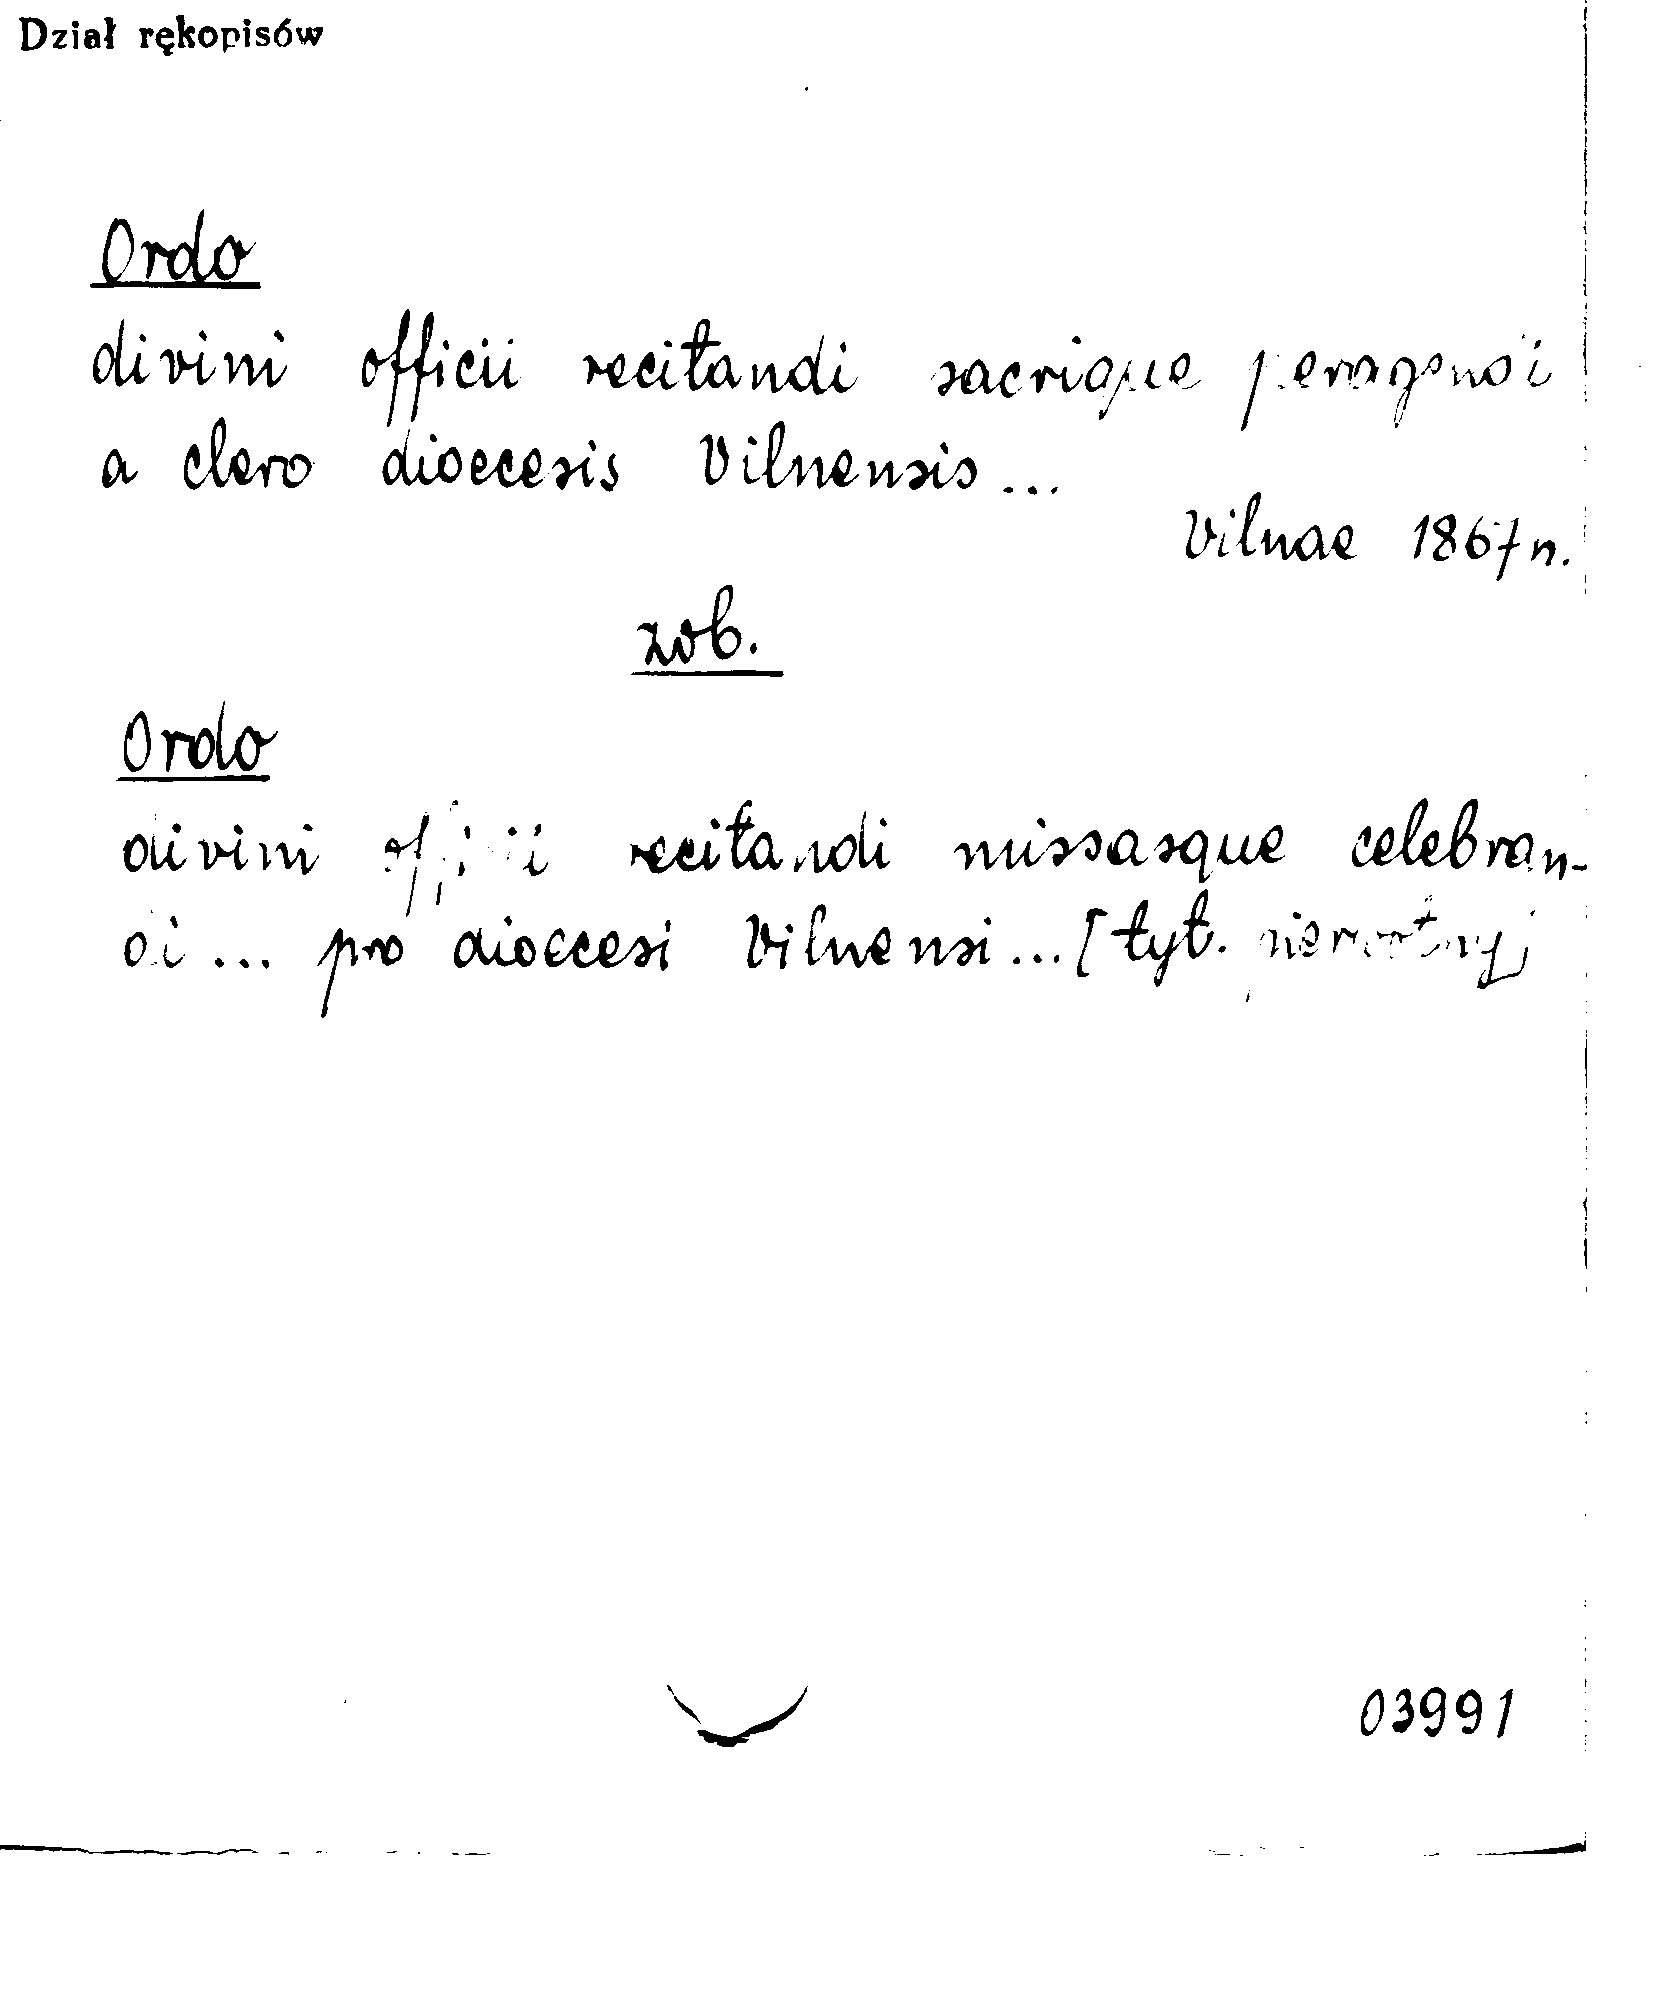 Dział rękopisów
Ordo
divini officii recitandi sacrique peragendi
a clero dioecesis Vilnensis...
Vilnae 1867 n.
zob.
Ordo
divini officii recitandi missasque celebran-
di... pro dioecesi Vilnensi... [tyt. pierwotny]
03991